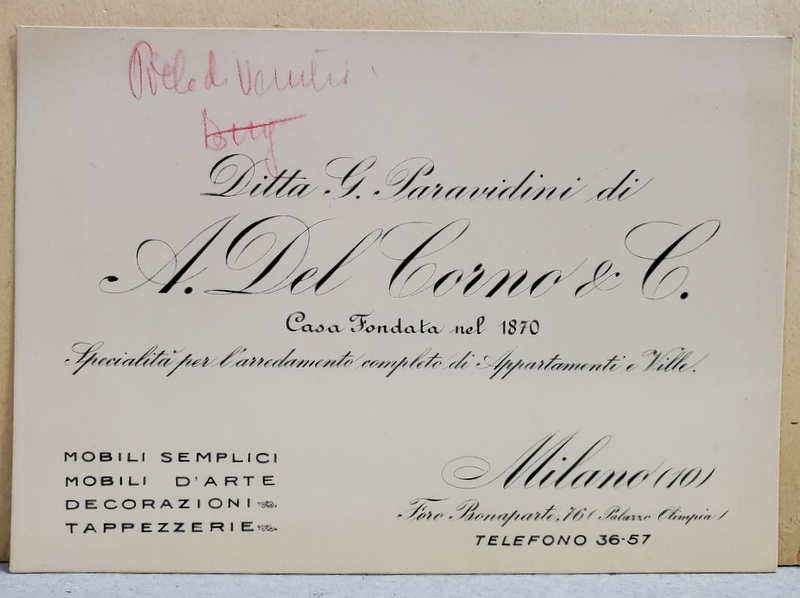 Ditta G. Paravidini di
A. Del Corno & C.
Casa Fondata nel 1870
Specialità per l'arredamento completo di Appartamenti e Ville.
MOBILI SEMPLICI
MOBILI D'ARTE
DECORAZIONI
TAPPEZZERIE
Milano (10)
Foro Bonaparte, 76 (Palazzo Olimpia)
TELEFONO 36-57